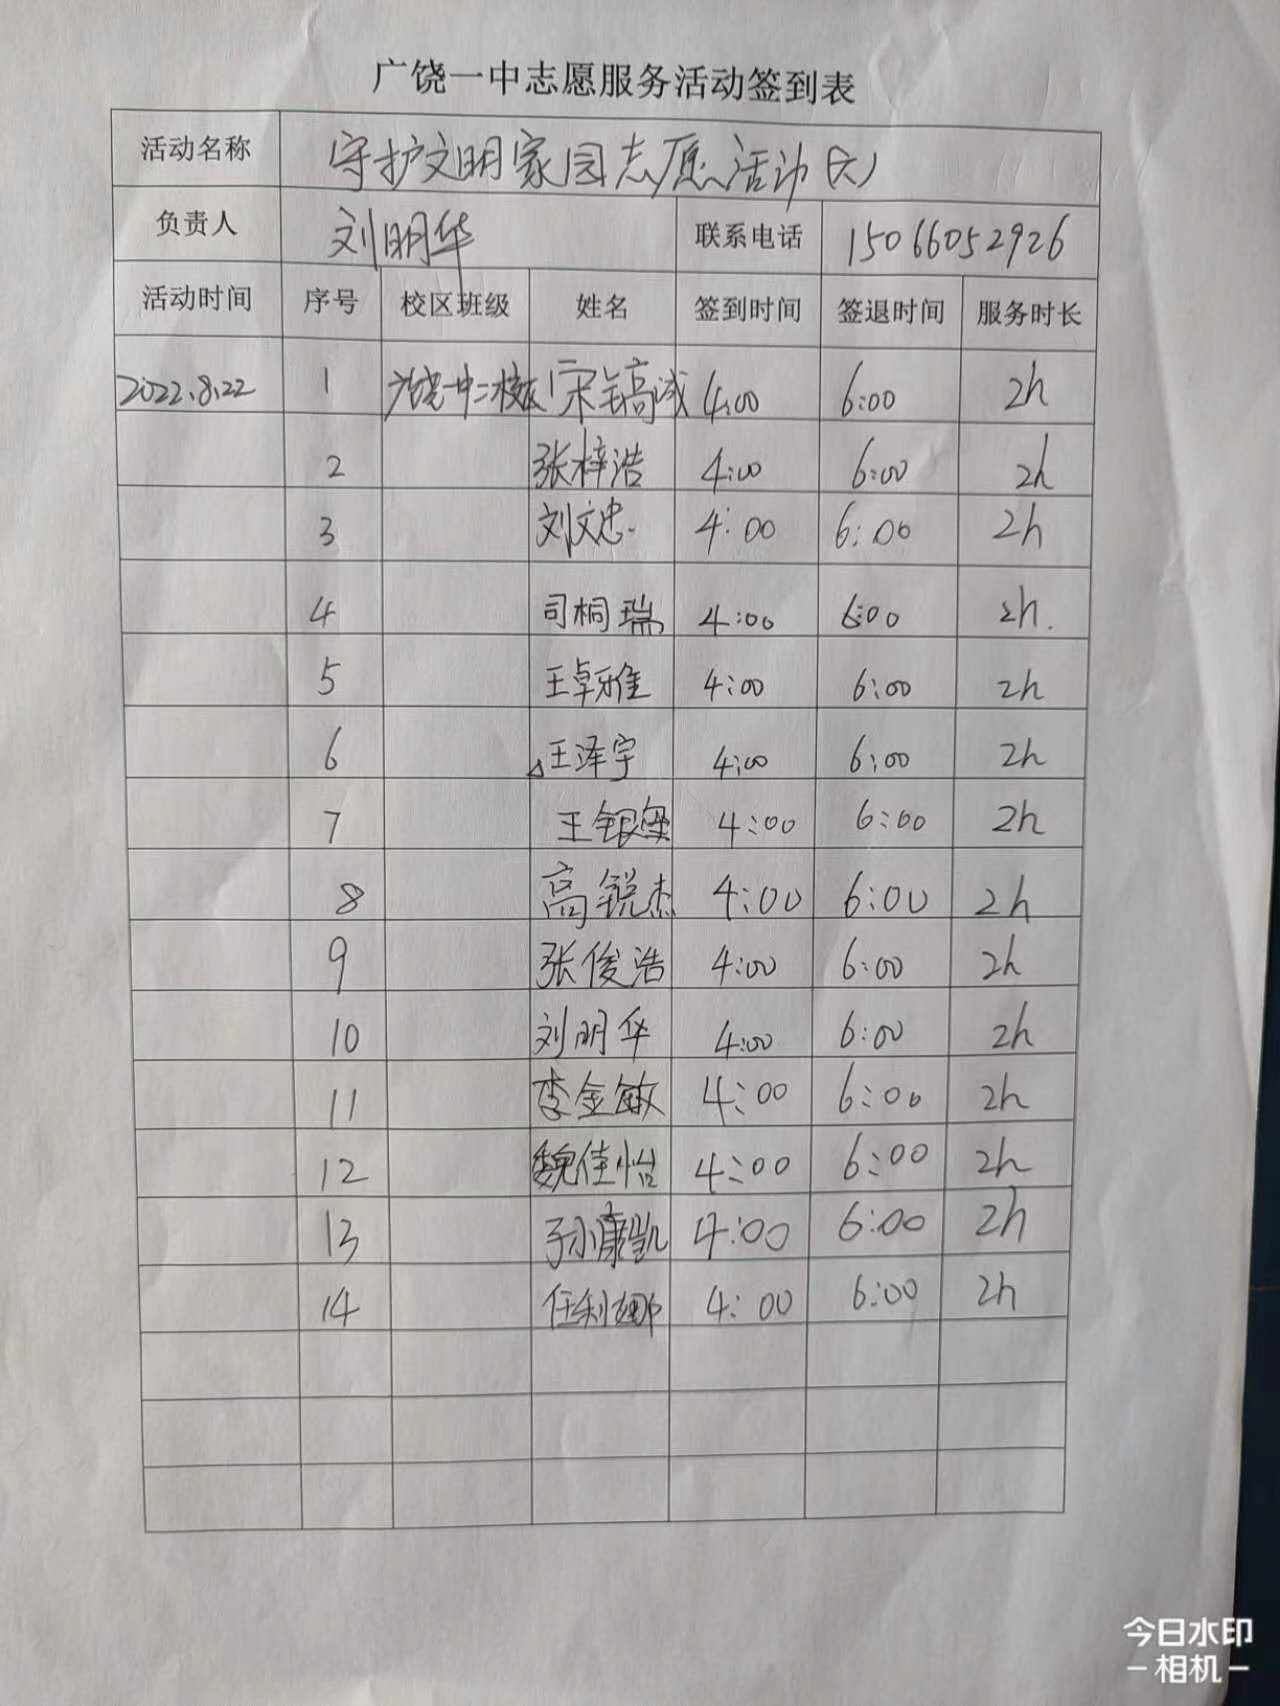 广饶一中志愿服务活动签到表
活动名称 守护文明家园志愿活动(六)
负责人 刘明华 联系电话 15066052926
活动时间 序号 校区班级 姓名 签到时间 签退时间 服务时长
2022.8.22 1 广饶一中二校区 宋镐诚 4:00 6:00 2h
2 张梓浩 4:00 6:00 2h
3 刘文忠 4:00 6:00 2h
4 司桐瑞 4:00 6:00 2h.
5 王卓雅 4:00 6:00 2h
6 王泽宇 4:00 6:00 2h
7 王银 4:00 6:00 2h
8 高锐杰 4:00 6:00 2h
9 张俊浩 4:00 6:00 2h
10 刘明华 4:00 6:00 2h
11 李金敏 4:00 6:00 2h
12 魏佳怡 4:00 6:00 2h
13 孙康凯 4:00 6:00 2h
14 任利娜 4:00 6:00 2h
今日水印
相机